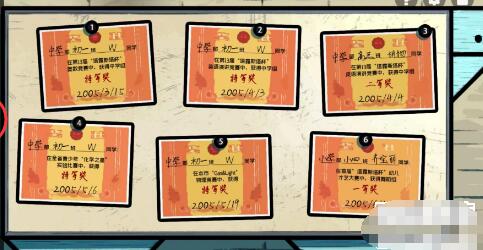 1
中学部 初一 班 W 同学
在第13届“塔露斯塔杯”
奥数竞赛中,获得中学组
特等奖
2005/3/15
2
中学部 初一 班 W 同学
在第13届“塔露斯塔杯”
英语演讲竞赛中,获得中学组
特等奖
2005/4/3
3
中学部
同学
在第13届“塔露斯塔杯”
英语演讲竞赛中,获得中学组
二等奖
2005/4/4
4
中学部 初一 班 W 同学
在全省青少年“化学之星”
实验比赛中,获得
特等奖
2005/5/6
5
中学部 初一 班 W 同学
在本市“Gaslight”
物理竞赛中,获得
特等奖
2005/5/19
6
小学部 小四 乔宝丽 同学
在首届“塔露斯塔杯”幼儿
才艺大赛中,获得舞蹈组
一等奖
2005/6